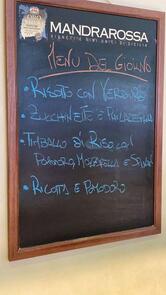 MANDRAROSSA
MENU DEL GIORNO
• RISOTTO CON VERDURE
• ZUCCHINETTE E
• TIMBALLO DI RISO CON
POMODORO, MOZZARELLA E
• RICOTTA E POMODORO